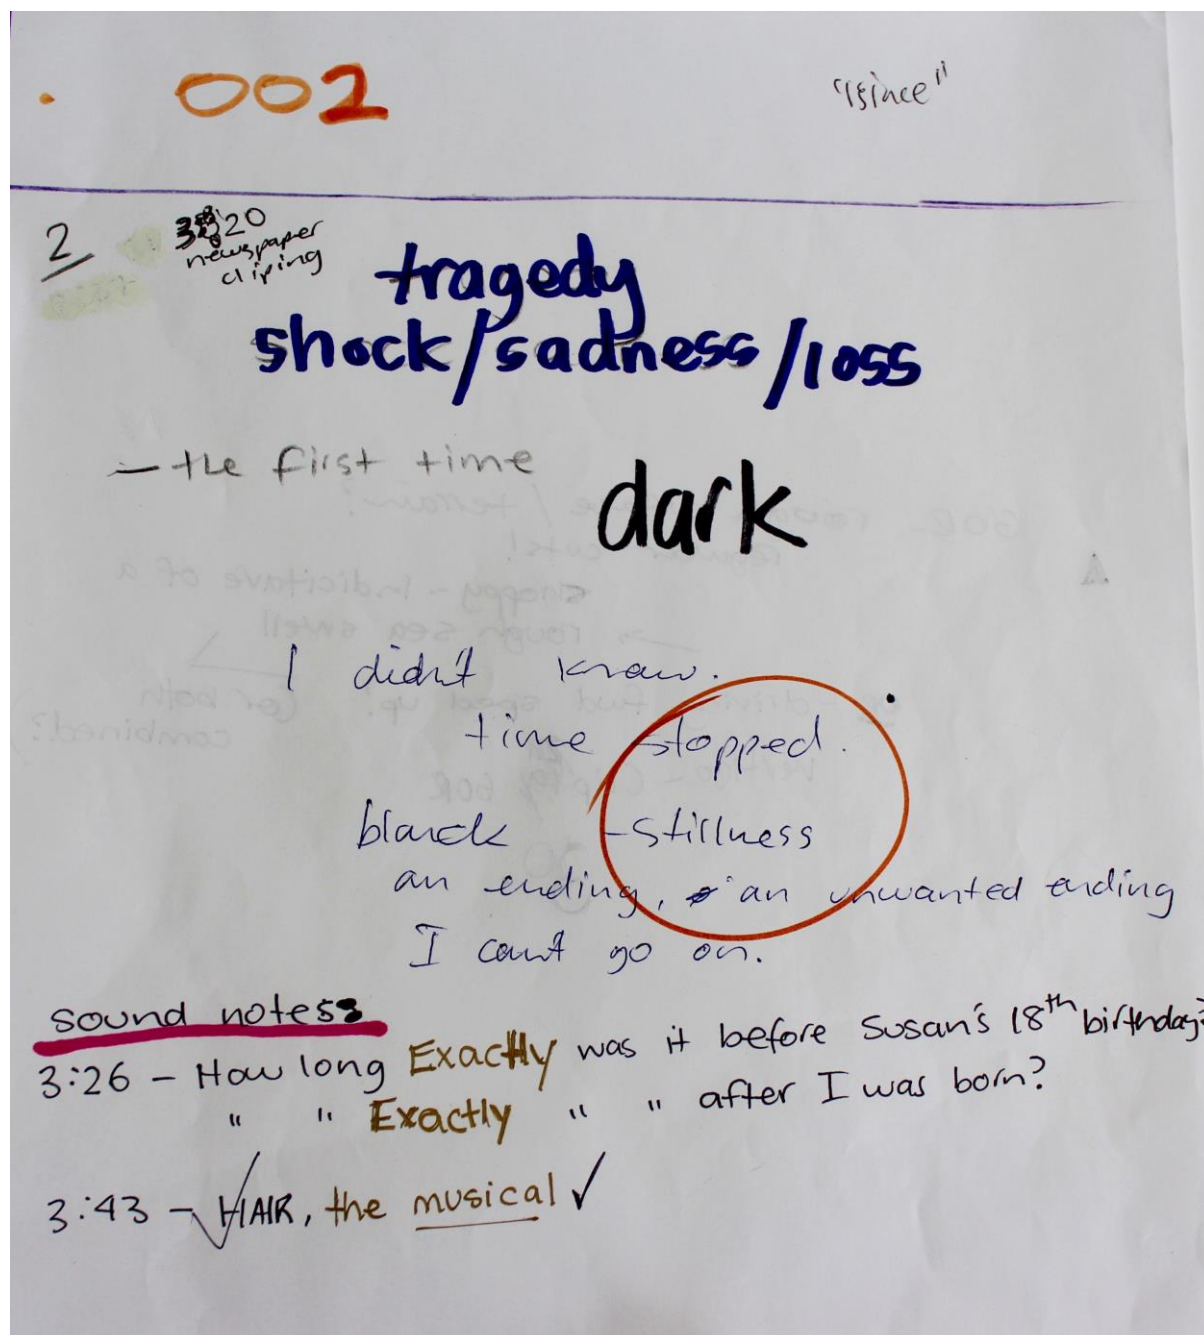 002
2
20
newspaper
cliping
tragedy
shock/sadness/loss
- the first time
dark
I didn't know.
time stopped.
- stillness
an ending, an unwanted ending
I can't go on.
sound notes:
3:26 - How long Exactly was it before Susan's 18th birthday?
" " Exactly " " after I was born?
3:43 - HAIR, the musical ✓